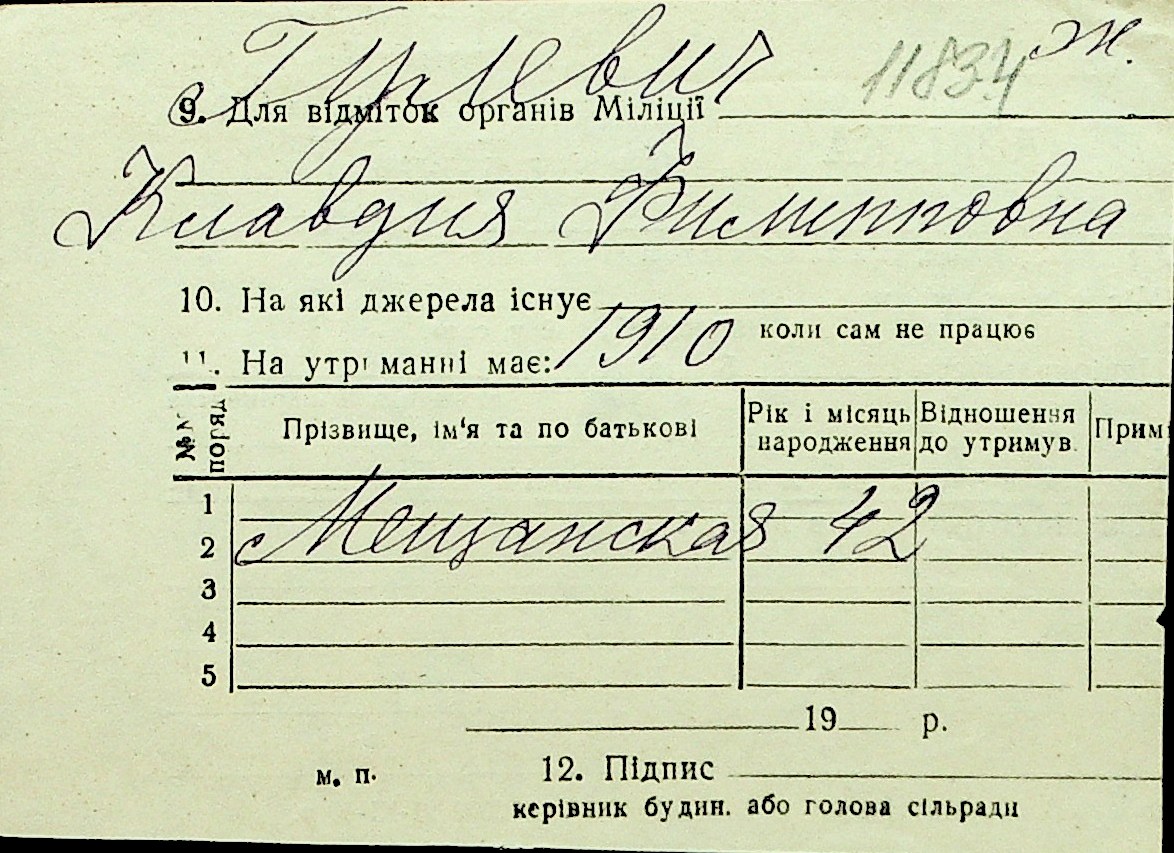 Гулевич 11834 ж.
9. Для відміток органів Міліції
Клавдия Филипповна
10. На які джерела існує
коли сам не працює
11. На утриманні має: 1910
№№ порядк Прізвище, ім'я та по батькові Рік і місяць народження Відношення до утримув. Прим
1
2 Мещанская 42
3
4
5
19 р.
м. п. 12. Підпис
керівник будин. або голова сільради